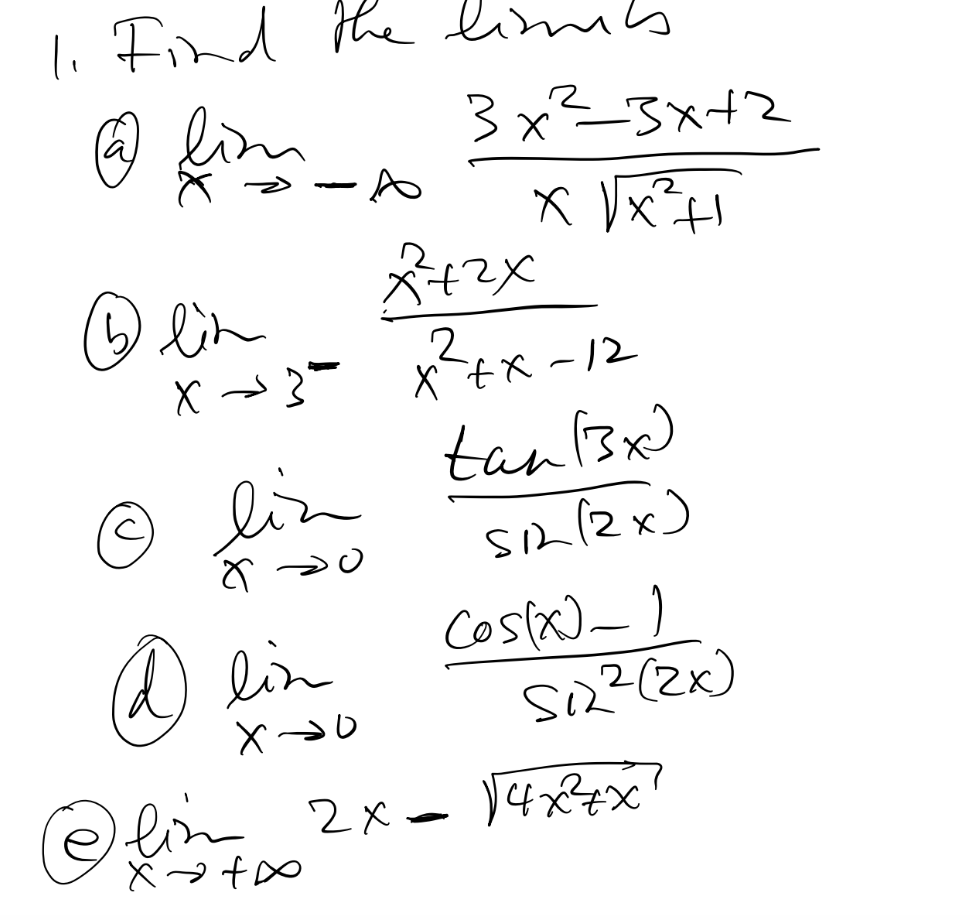 1. Find the limits
(a) lim x → -∞ (3x² - 3x + 2) / (x √(x² + 1))
(b) lim x → 3⁻ (x² + 2x) / (x² + x - 12)
(c) lim x → 0 tan(3x) / sin(2x)
(d) lim x → 0 (cos(x) - 1) / sin²(2x)
(e) lim x → +∞ 2x - √(4x² + x)